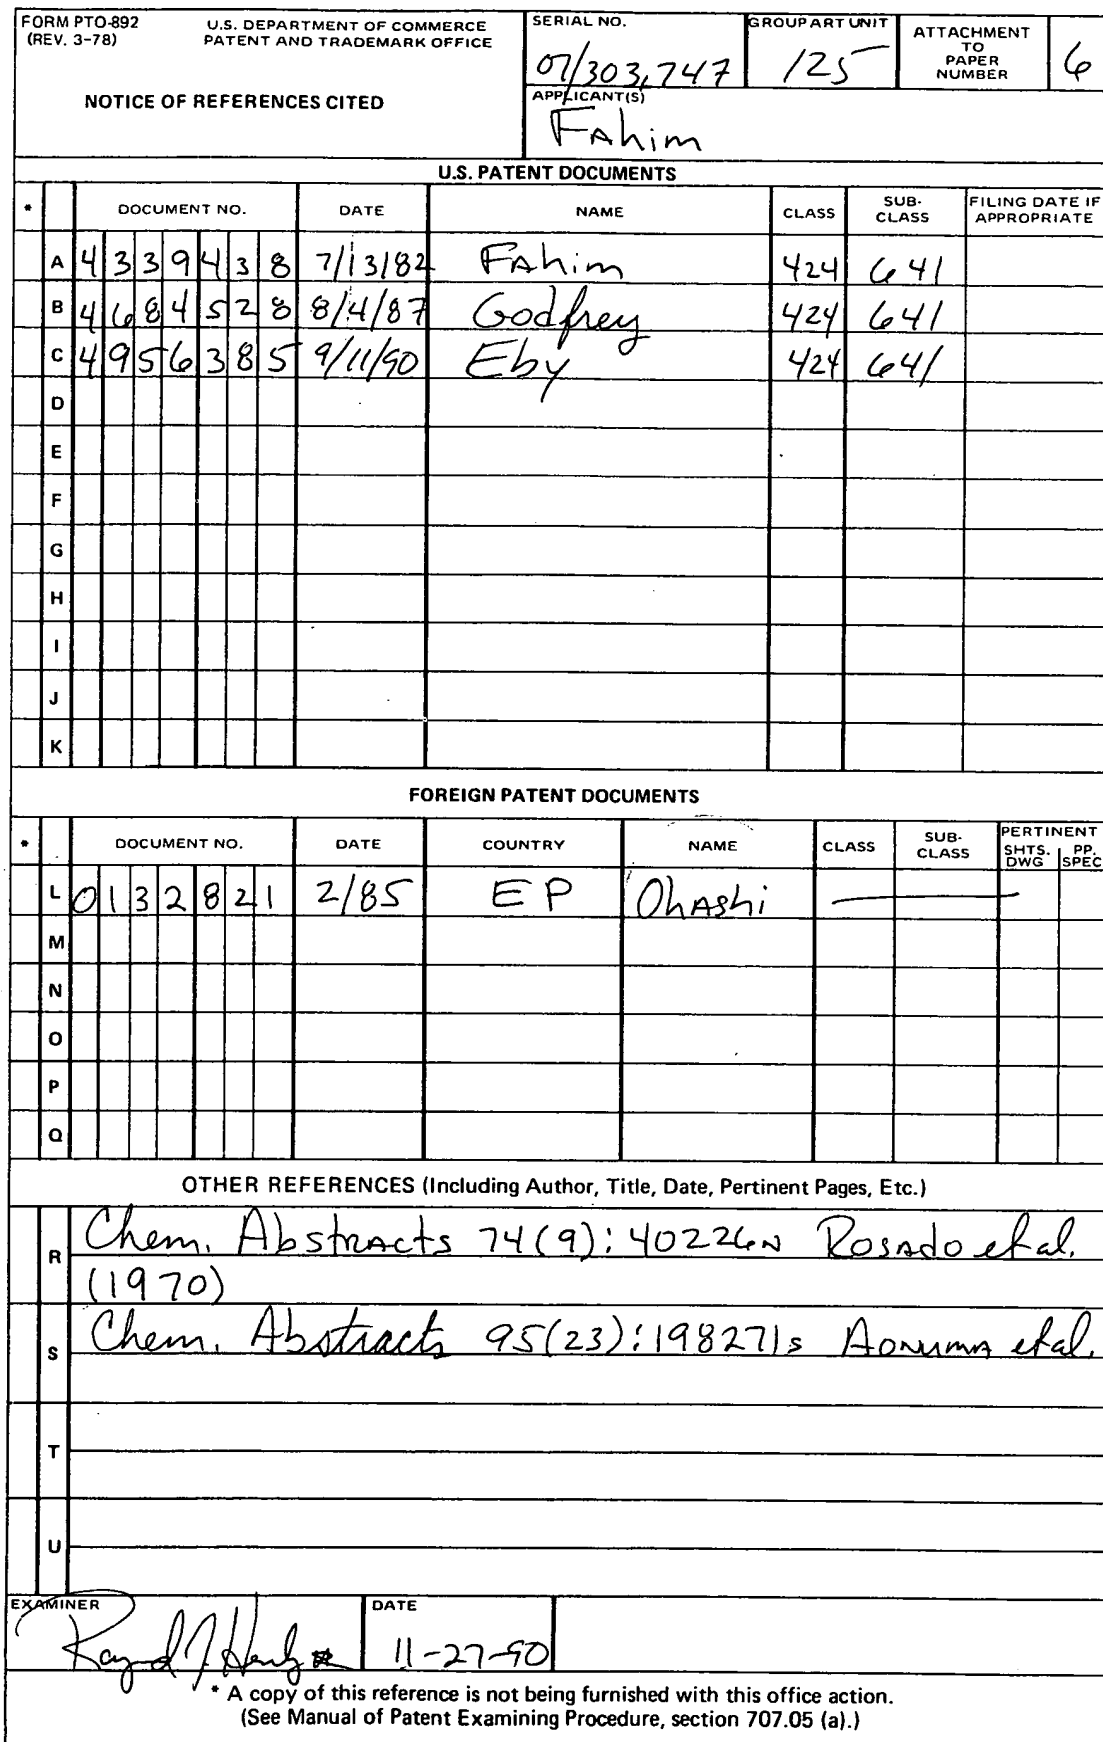 FORM PTO-892 U.S. DEPARTMENT OF COMMERCE
(REV. 3-78) PATENT AND TRADEMARK OFFICE
NOTICE OF REFERENCES CITED
SERIAL NO. GROUP ART UNIT ATTACHMENT TO PAPER NUMBER
07/303,747 125 6
APPLICANT(S)
Fahim
U.S. PATENT DOCUMENTS
* DOCUMENT NO. DATE NAME CLASS SUB-CLASS FILING DATE IF APPROPRIATE
A 4339438 7/13/82 Fahim 424 641
B 4684528 8/4/87 Godfrey 424 641
C 4956385 9/11/90 Eby 424 641
D
E
F
G
H
I
J
K
FOREIGN PATENT DOCUMENTS
* DOCUMENT NO. DATE COUNTRY NAME CLASS SUB-CLASS PERTINENT SHTS. DWG PP. SPEC
L 0132821 2/85 EP Ohashi
M
N
O
P
Q
OTHER REFERENCES (Including Author, Title, Date, Pertinent Pages, Etc.)
R Chem. Abstracts 74(9): 40226N Rosado et al.
(1970)
S Chem. Abstracts 95(23): 198271s Aonuma et al.
T
U
EXAMINER DATE
11-27-90
* A copy of this reference is not being furnished with this office action.
(See Manual of Patent Examining Procedure, section 707.05 (a).)